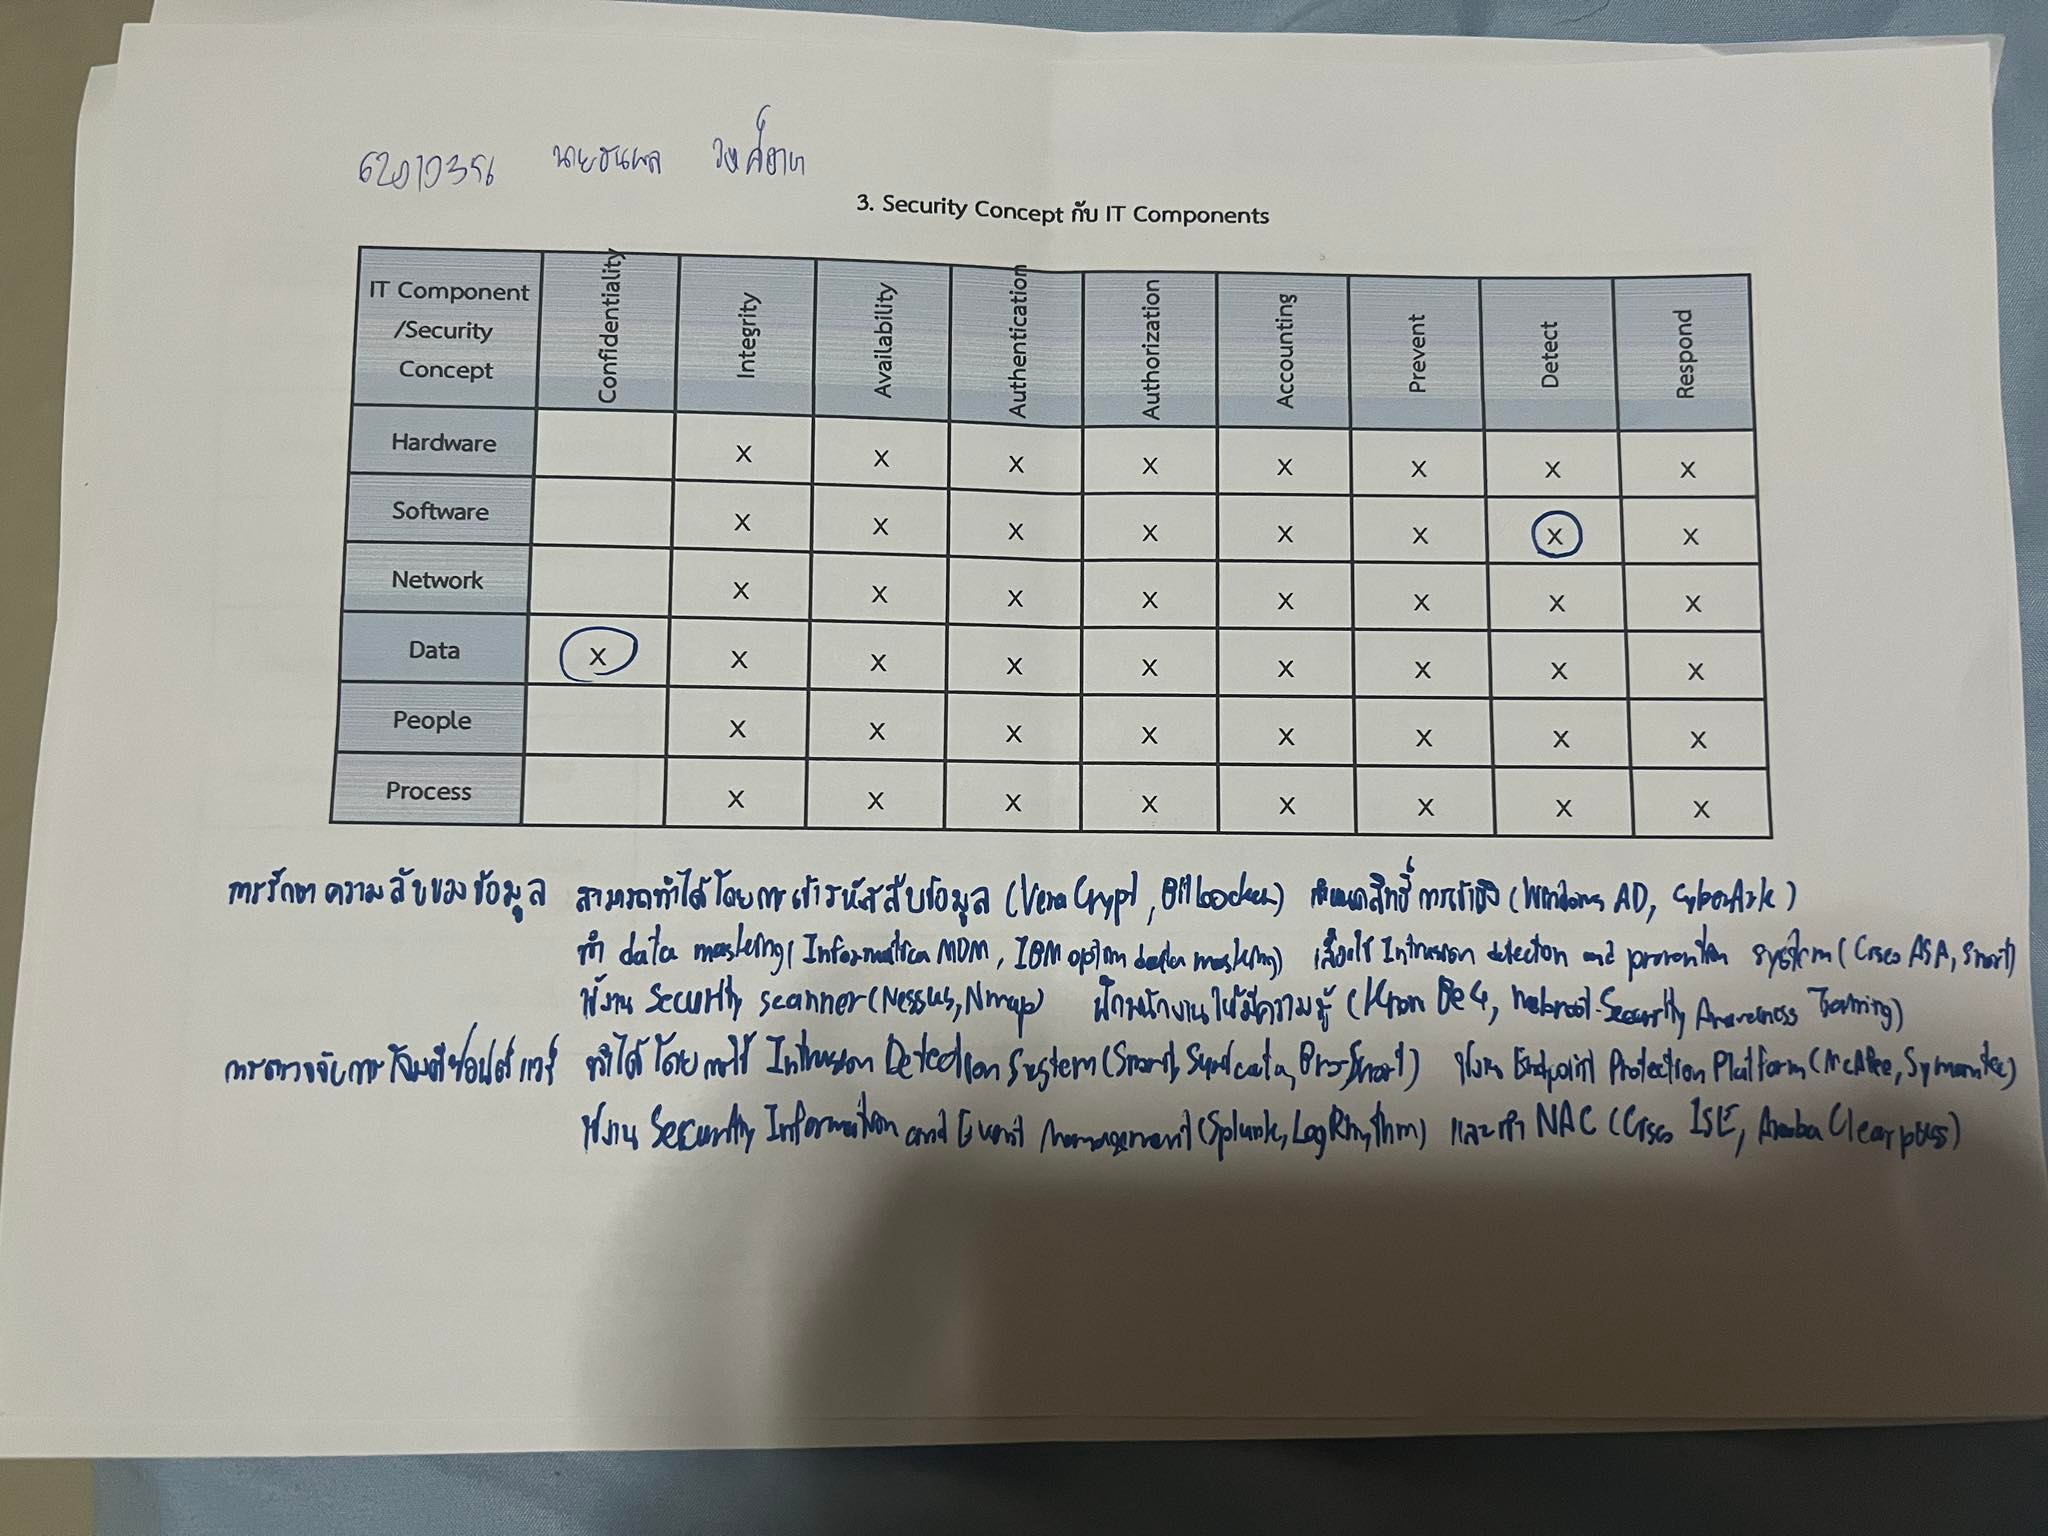 62010356 นายธนพล วงศ์อาษา
3. Security Concept กับ IT Components
IT Component /Security Concept Confidentiality Integrity Availability Authentication Authorization Accounting Prevent Detect Respond
Hardware X X X X X X X X
Software X X X X X X X X
Network X X X X X X X X
Data X X X X X X X X X
People X X X X X X X X
Process X X X X X X X X
การรักษาความลับของข้อมูล สามารถทำได้โดยการเข้ารหัสลับข้อมูล (VeraCrypt, BitLocker) กำหนดสิทธิ์การเข้าถึง (Windows AD, CyberArk)
ทำ data masking (Informatica MDM, IBM optim data masking) เลือกใช้ Intrusion detection and prevention system (Cisco ASA, Snort)
ใช้งาน Security scanner (Nessus, Nmap) ฝึกพนักงานให้มีความรู้ (Know Be4, Webroot Security Awareness Training)
การตรวจจับการโจมตีซอฟต์แวร์ ทำได้โดยการใช้ Intrusion Detection System (Snort, ) ใช้งาน Endpoint Protection Platform (McAfee, Symantec)
ใช้งาน Security Information and Event Management (Splunk, LogRhythm) และทำ NAC (Cisco ISE, Aruba Clearpass)